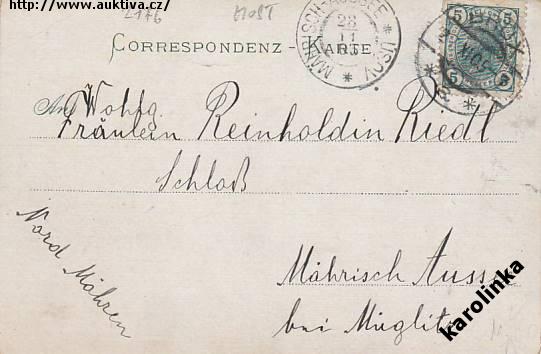 http://www.auktiva.cz/
MOST
CORRESPONDENZ - KARTE
MÄHRISCH-AUSSEE * ÚSOV *
28
11
5 5
5 5
An Wohlg.
Fräulein Reinholdin Riedl
Schloß
Nord Mähren
Mährisch Aussee
bei Müglitz
karolinka